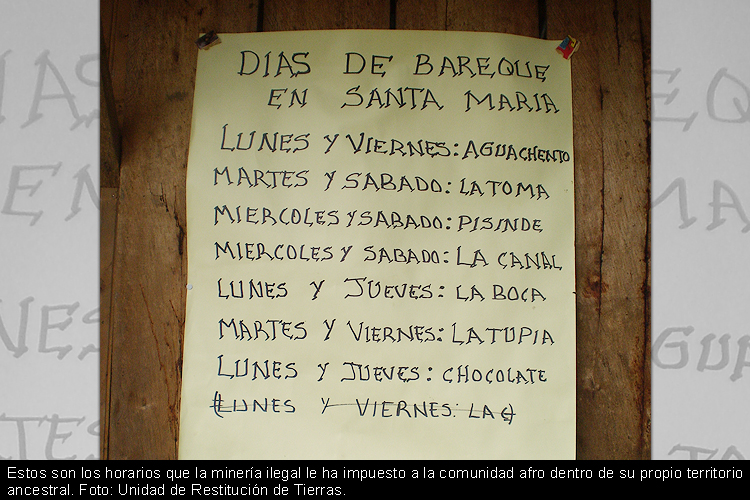 DIAS DE BAREQUE
EN SANTA MARIA
LUNES Y VIERNES: AGUACHENTO
MARTES Y SABADO: LA TOMA
MIERCOLES Y SABADO: PISINDE
MIERCOLES Y SABADO: LA CANAL
LUNES Y JUEVES: LA BOCA
MARTES Y VIERNES: LA TUPIA
LUNES Y JUEVES: CHOCOLATE
(LUNES Y VIERNES: LA C)
Estos son los horarios que la minería ilegal le ha impuesto a la comunidad afro dentro de su propio territorio
ancestral. Foto: Unidad de Restitución de Tierras.